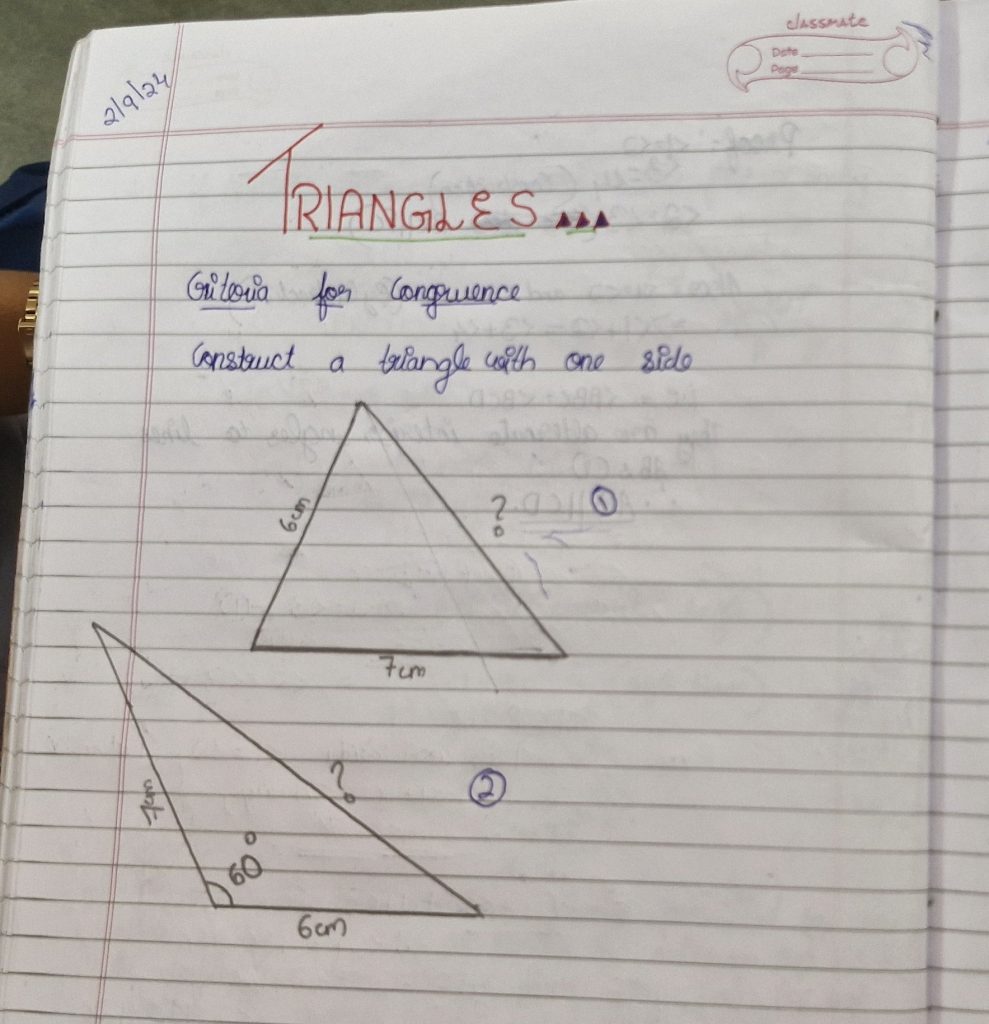 classmate
Date
Page
2/9/24
TRIANGLES...
Criteria for Congruence
Construct a triangle with one side
6cm
? ①
7cm
7cm
? ②
60°
6cm